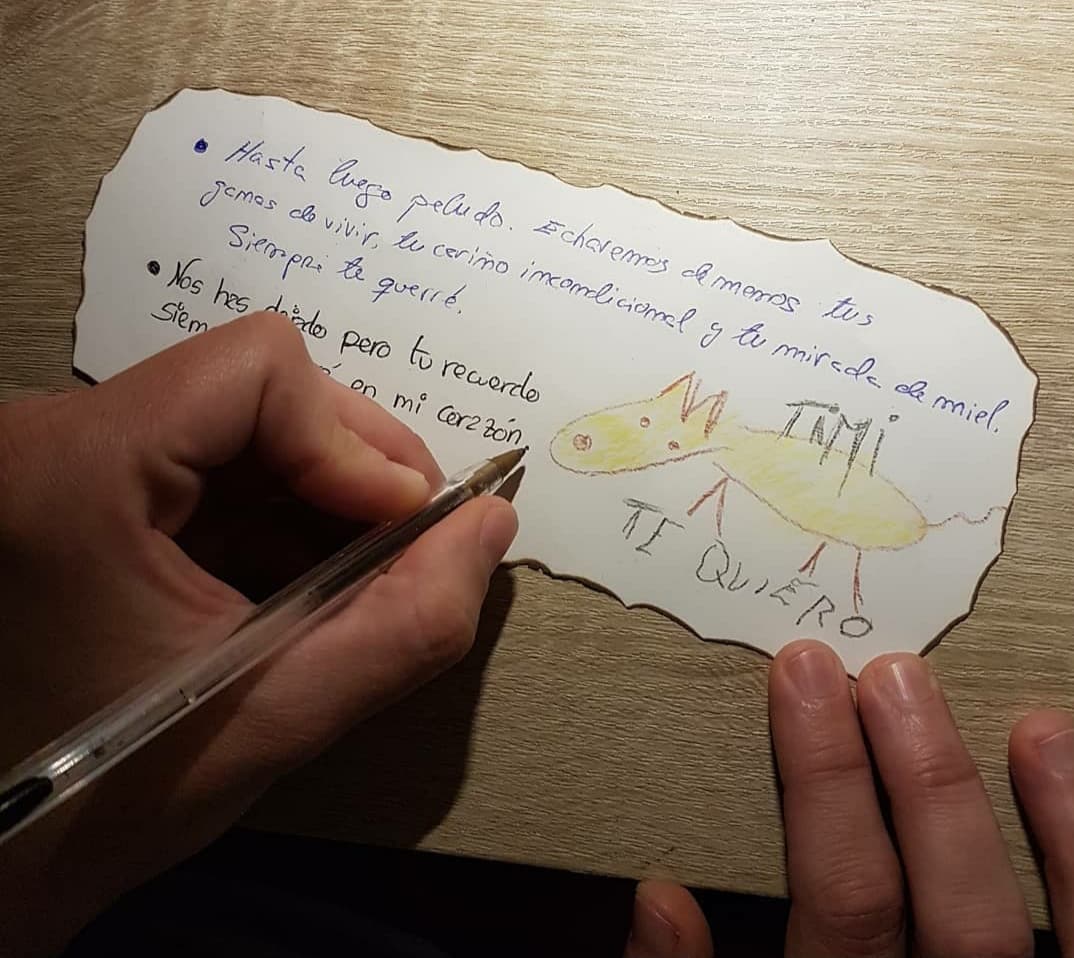 Hasta luego peludo. Echaremos de menos tus
ganas de vivir, tu cariño incondicional y tu mirada de miel.
Siempre te querré.
Nos has dejado pero tu recuerdo
siem en mi corazón.
TIMI
TE QUIERO